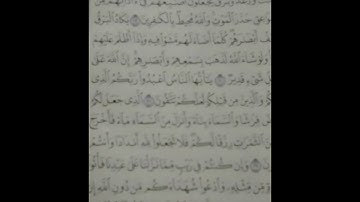 حَذَرَ ٱلْمَوْتِ وَٱللَّهُ مُحِيطٌۢ بِٱلْكَٰفِرِينَ ۝ يَكَادُ ٱلْبَرْقُ
أَبْصَٰرَهُمْ كُلَّمَآ أَضَآءَ لَهُم مَّشَوْا۟ فِيهِ وَإِذَآ أَظْلَمَ عَلَيْهِمْ
وَلَوْ شَآءَ ٱللَّهُ لَذَهَبَ بِسَمْعِهِمْ وَأَبْصَٰرِهِمْ إِنَّ ٱللَّهَ عَلَىٰ
شَىْءٍ قَدِيرٌ ۝ يَٰٓأَيُّهَا ٱلنَّاسُ ٱعْبُدُوا۟ رَبَّكُمُ ٱلَّذِى
وَٱلَّذِينَ مِن قَبْلِكُمْ لَعَلَّكُمْ تَتَّقُونَ ۝ ٱلَّذِى جَعَلَ لَكُمُ
فِرَٰشًا وَٱلسَّمَآءَ بِنَآءً وَأَنزَلَ مِنَ ٱلسَّمَآءِ مَآءً فَأَخْرَجَ
ٱلثَّمَرَٰتِ رِزْقًا لَّكُمْ فَلَا تَجْعَلُوا۟ لِلَّهِ أَندَادًا وَأَنتُمْ
۝ وَإِن كُنتُمْ فِى رَيْبٍ مِّمَّا نَزَّلْنَا عَلَىٰ عَبْدِنَا فَأْتُوا۟
مِّن مِّثْلِهِۦ وَٱدْعُوا۟ شُهَدَآءَكُم مِّن دُونِ ٱللَّهِ إِن